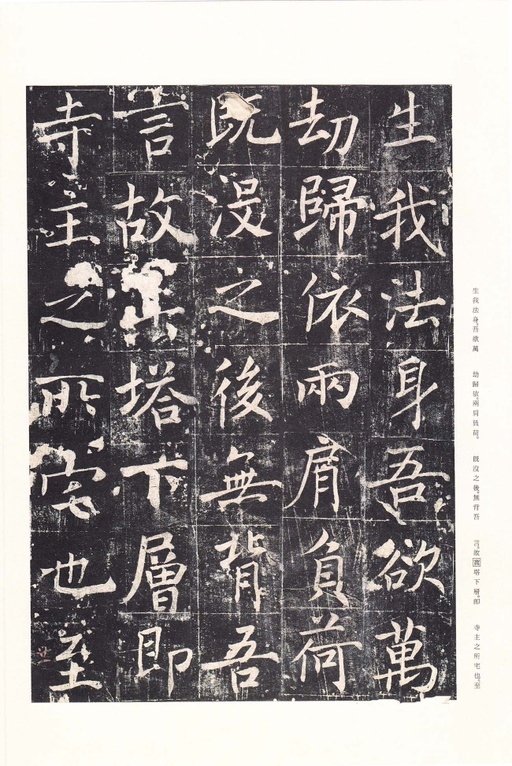 生我法身吾欲萬
劫歸依兩肩負荷
既沒之後無背吾
言故 塔下層即
寺主之所宅也至
生我法身。吾欲萬 劫歸依。兩肩負荷。 既沒之後。無背吾 言。故 塔下層。即 寺主之所宅也。至